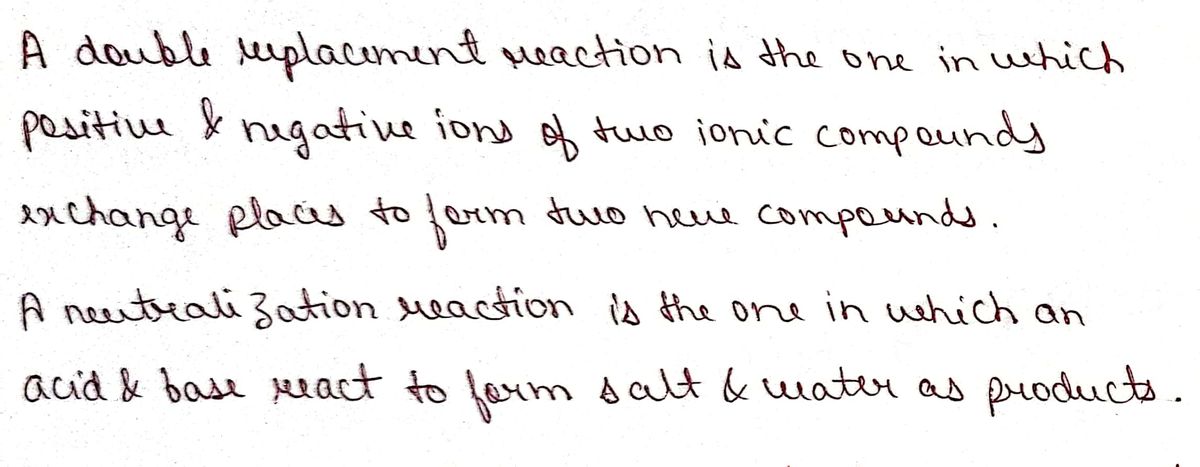 A double replacement reaction is the one in which
positive & negative ions of two ionic compounds
exchange places to form two new compounds.
A neutralization reaction is the one in which an
acid & base react to form salt & water as products.